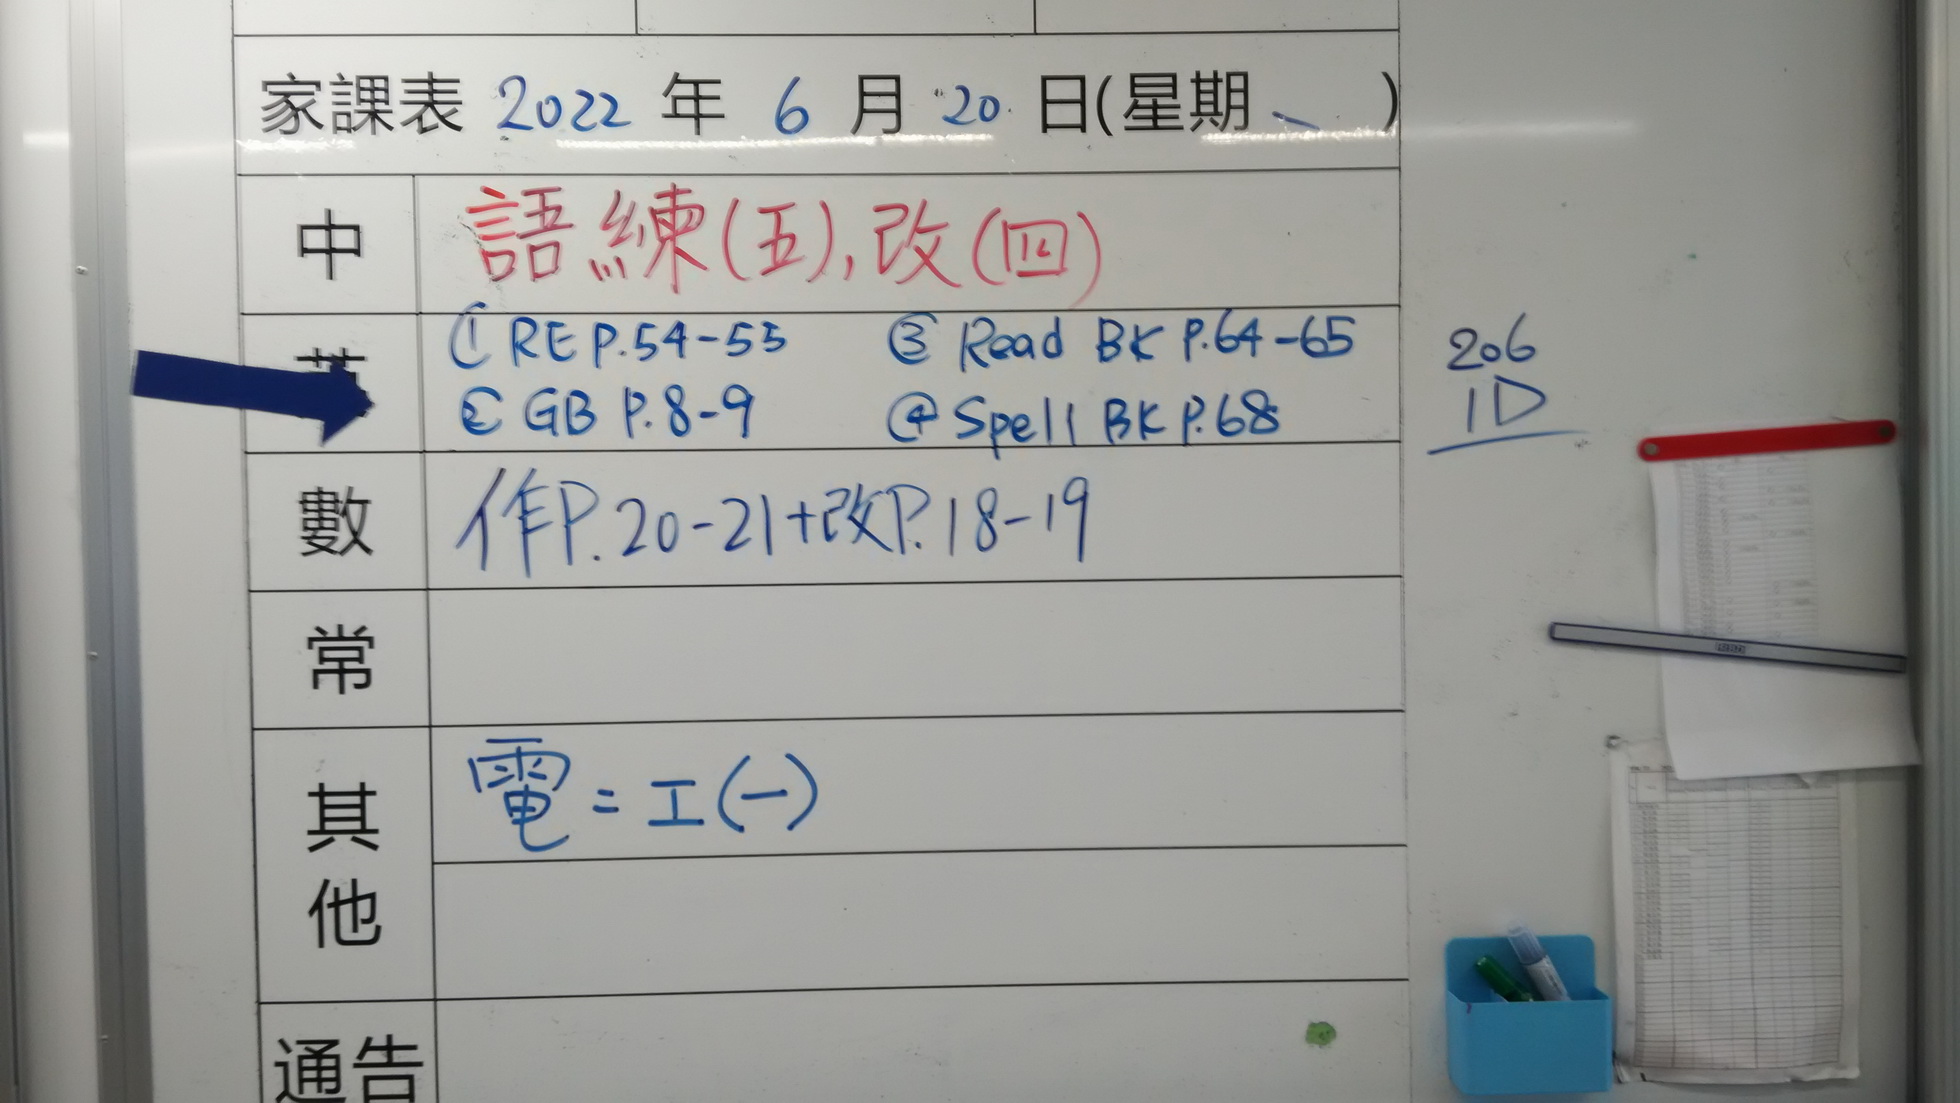 家課表 2022 年 6 月 20 日(星期 一 )
中 語練(五), 改(四)
英 ① RE P.54-55 ③ Read BK P.64-65
② GB P.8-9 ④ Spell BK P.68
206
1D
數 作P.20-21+改P.18-19
常
其他 電=工(一)
通告